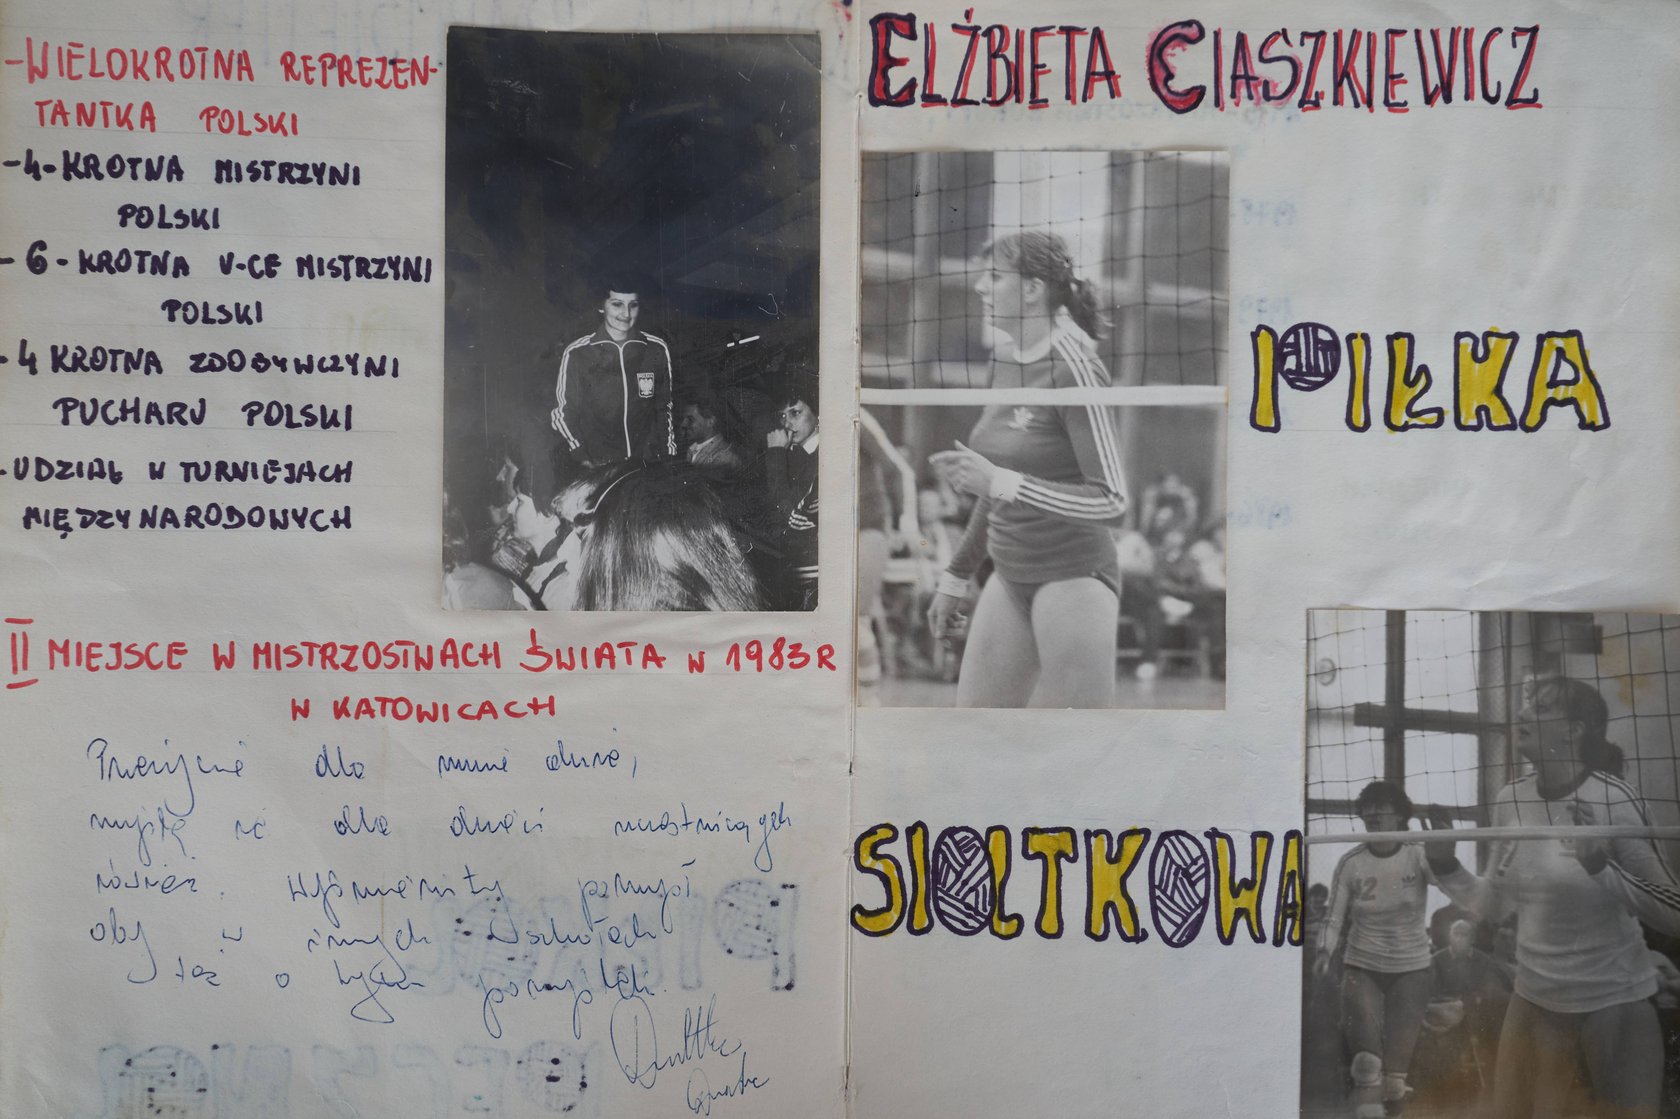 -WIELOKROTNA REPREZEN-
TANTKA POLSKI
-4-KROTNA MISTRZYNI
POLSKI
-6-KROTNA V-CE MISTRZYNI
POLSKI
-4 KROTNA ZDOBYWCZYNI
PUCHARU POLSKI
-UDZIAŁ W TURNIEJACH
MIĘDZYNARODOWYCH
II MIEJSCE W MISTRZOSTWACH ŚWIATA W 1983R
W KATOWICACH
dla mnie duże,
myślę że dla dzieci uczestniczących
również. Wyśmienity pomysł
oby w innych szkołach
też o tym
ELŻBIETA CIASZKIEWICZ
PIŁKA
SIOŁTKOWA
12